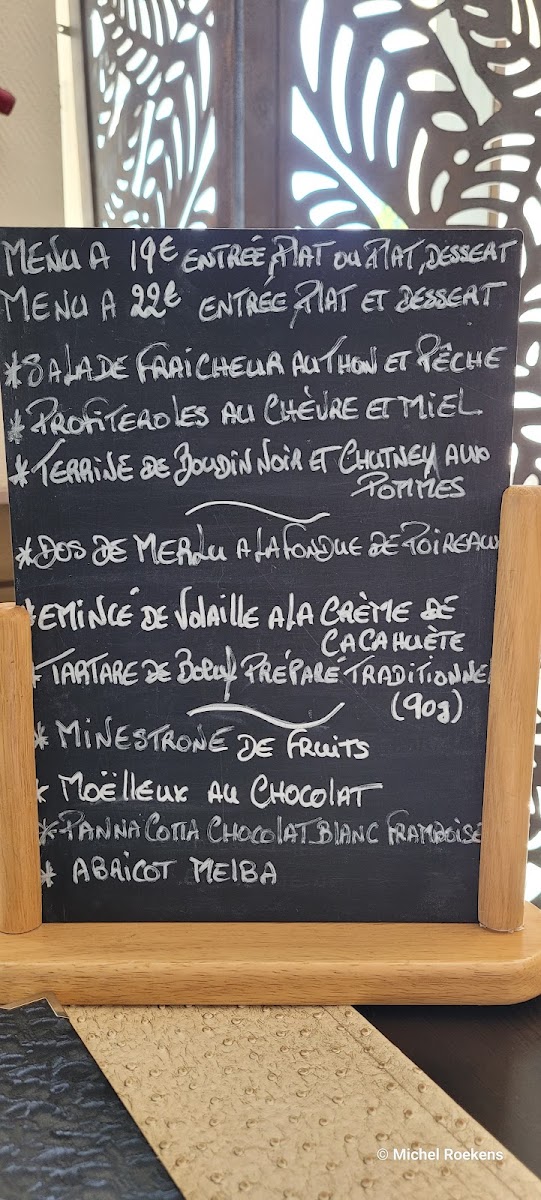 MENU A 19€ ENTRÉE, PLAT OU PLAT, DESSERT
MENU A 22€ ENTRÉE PLAT ET DESSERT
* SALADE FRAICHEUR AU THON ET PÊCHE
* PROFITEROLES AU CHÈVRE ET MIEL
* TERRINE DE BOUDIN NOIR ET CHUTNEY AUX
POMMES
* DOS DE MERLU A LA FONDUE DE POIREAUX
* EMINCÉ DE VOLAILLE A LA CRÈME DE
CACAHUÈTE
* TARTARE DE BŒUF PRÉPARÉ TRADITIONNEL
(90g)
* MINESTRONE DE FRUITS
* MOËLLEUX AU CHOCOLAT
* PANNA COTTA CHOCOLAT BLANC FRAMBOISE
* ABRICOT MELBA
© Michel Roekens